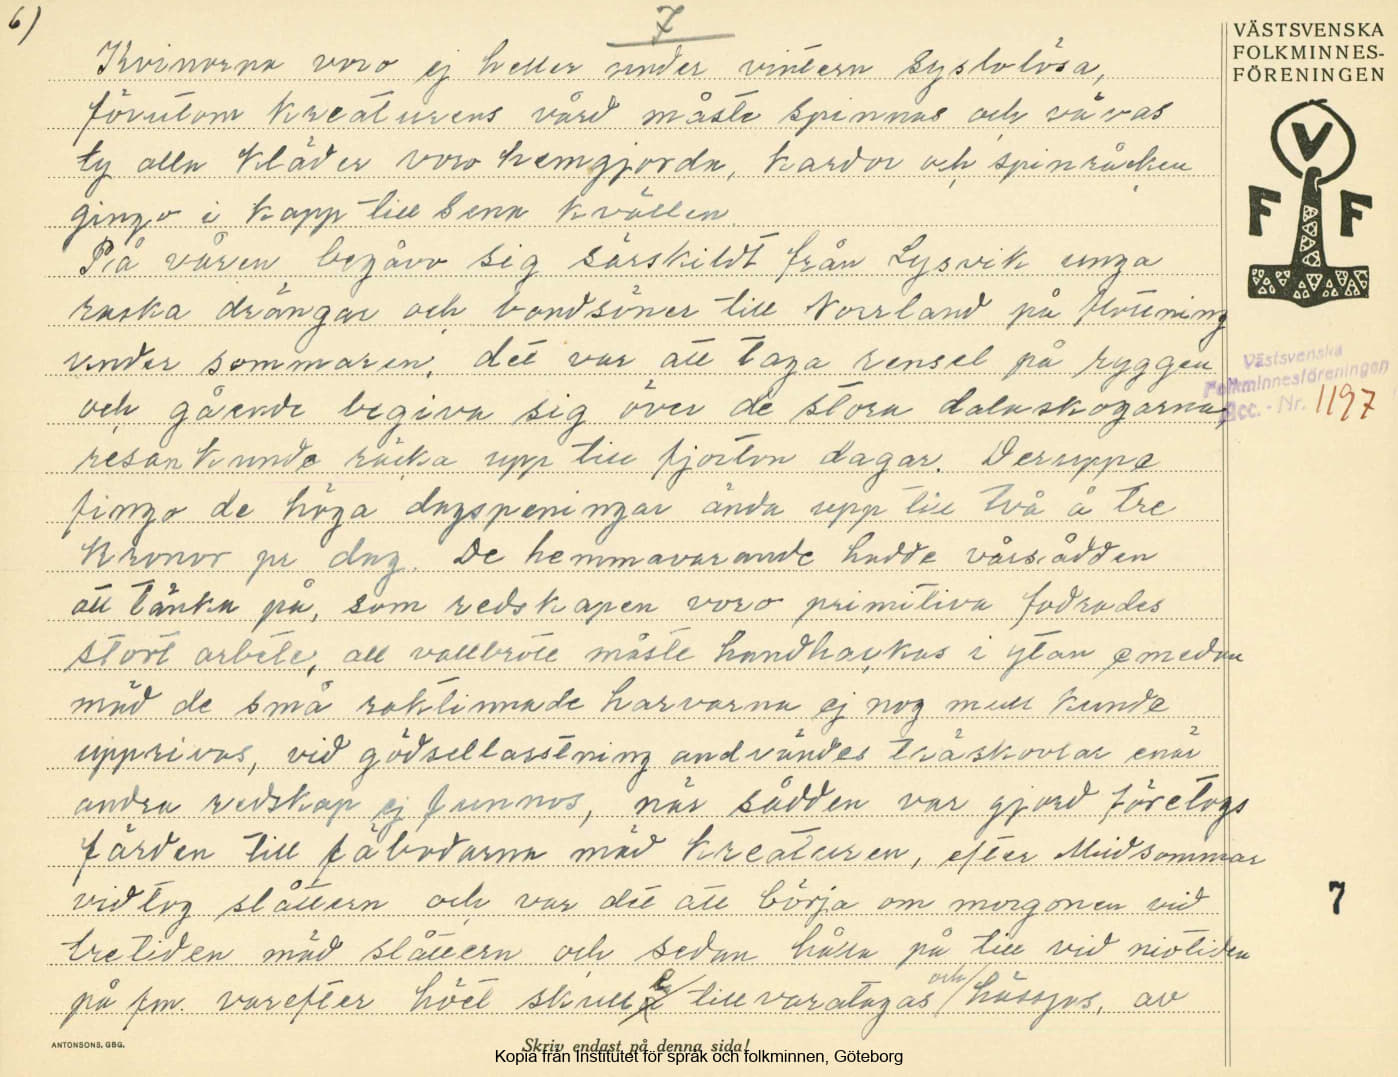 6)
7
VÄSTSVENSKA
FOLKMINNES-
FÖRENINGEN
V
F F
Kvinorna voro ej heller under vintern syslolösa,
förutom kreaturens vård måste spinnas och vävas
ty alla kläder voro hemgjorda, kardor och spinråcken
gingo i kapp till sena kvällen.
På våren begåvo sig särskildt från Lysvik unga
raska drängar och bondsöner till Norrland på flottning
under sommaren, det var att taga rensel på ryggen
och gående begiva sig över de stora dalaskogarna,
resan kunde räcka upp till fjorton dagar. Deruppe
fingo de höga dagspeningar ända upp till två å tre
kronor pr dag. De hemmavarande hadde vårsådden
att tänka på, som redskapen voro primitiva fodrades
stort arbete, all vallbrott måste handhackas i ytan emedan
mäd de små raktinnade harvarna ej nog mull kunde
upprivas, vid gödsellasstning andvändes träskovlar enär
andra redskap ej funnos, när sådden var gjord företogs
färden till fäbodarna mäd kreaturen, efter Midsommar
vidtog slåttern och var det att börja om morgonen vid
tretiden mäd slåttern och sedan hålla på till vid niotiden
på fm. varefter höet skulle till varatagas och hässjas, av
Västsvenska
Folkminnesföreningen
Acc. - Nr. 1197
7
ANTONSONS, GBG.
Skriv endast på denna sida!
Kopia från Institutet för språk och folkminnen, Göteborg